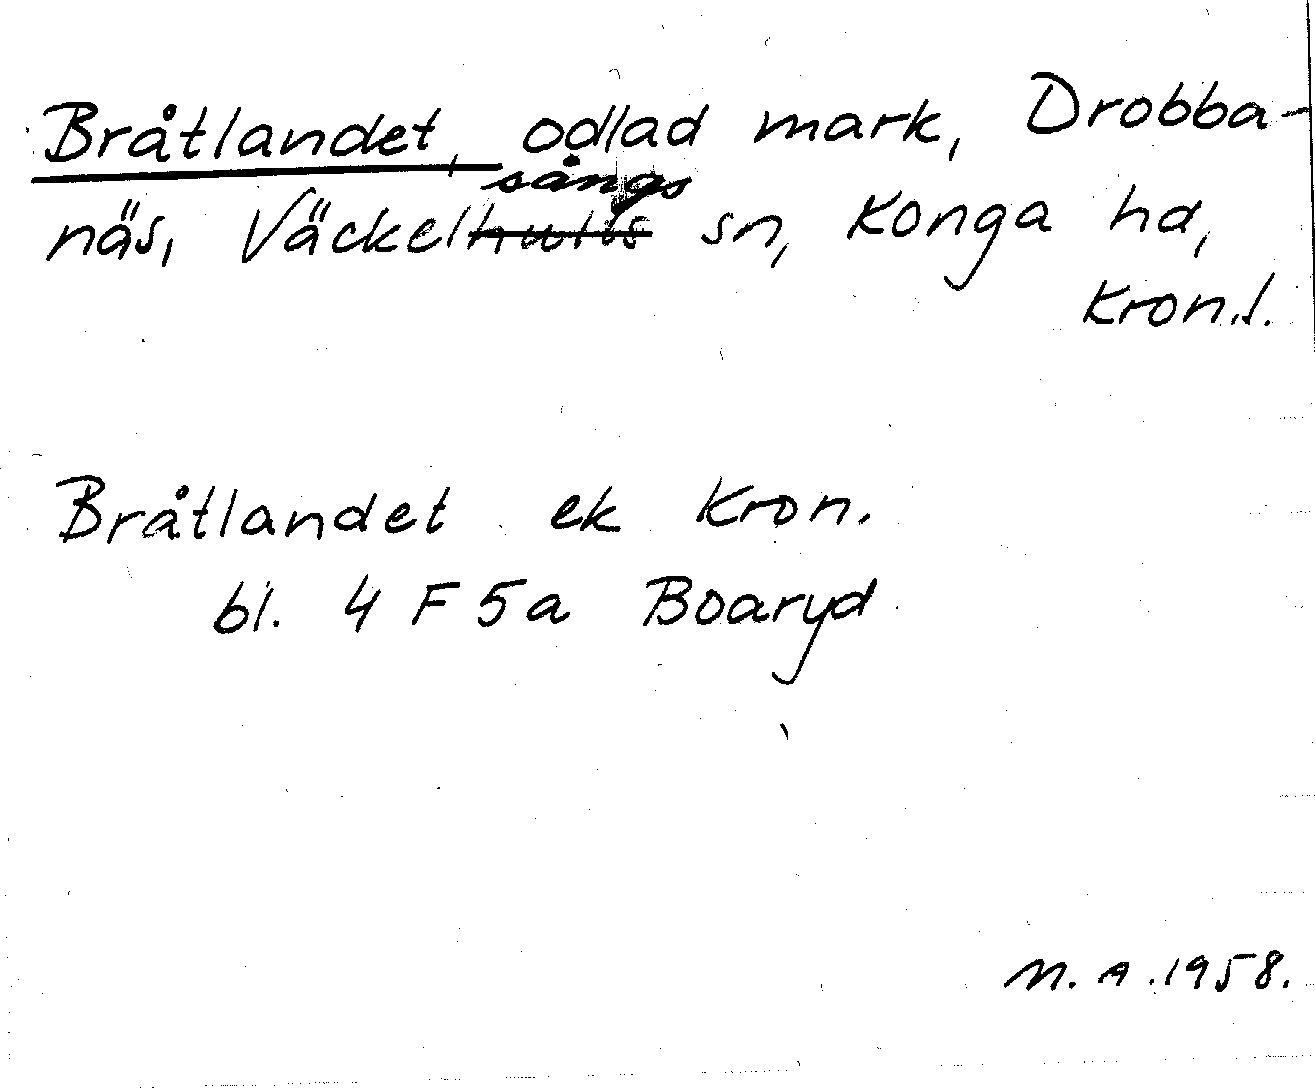 Bråtlandet, odlad mark, Drobba-
näs, Väckelsångs sn, Konga hd,
Kron.l.
Bråtlandet ek Kron.
bl. 4 F 5a Boaryd
M. A. 1958.